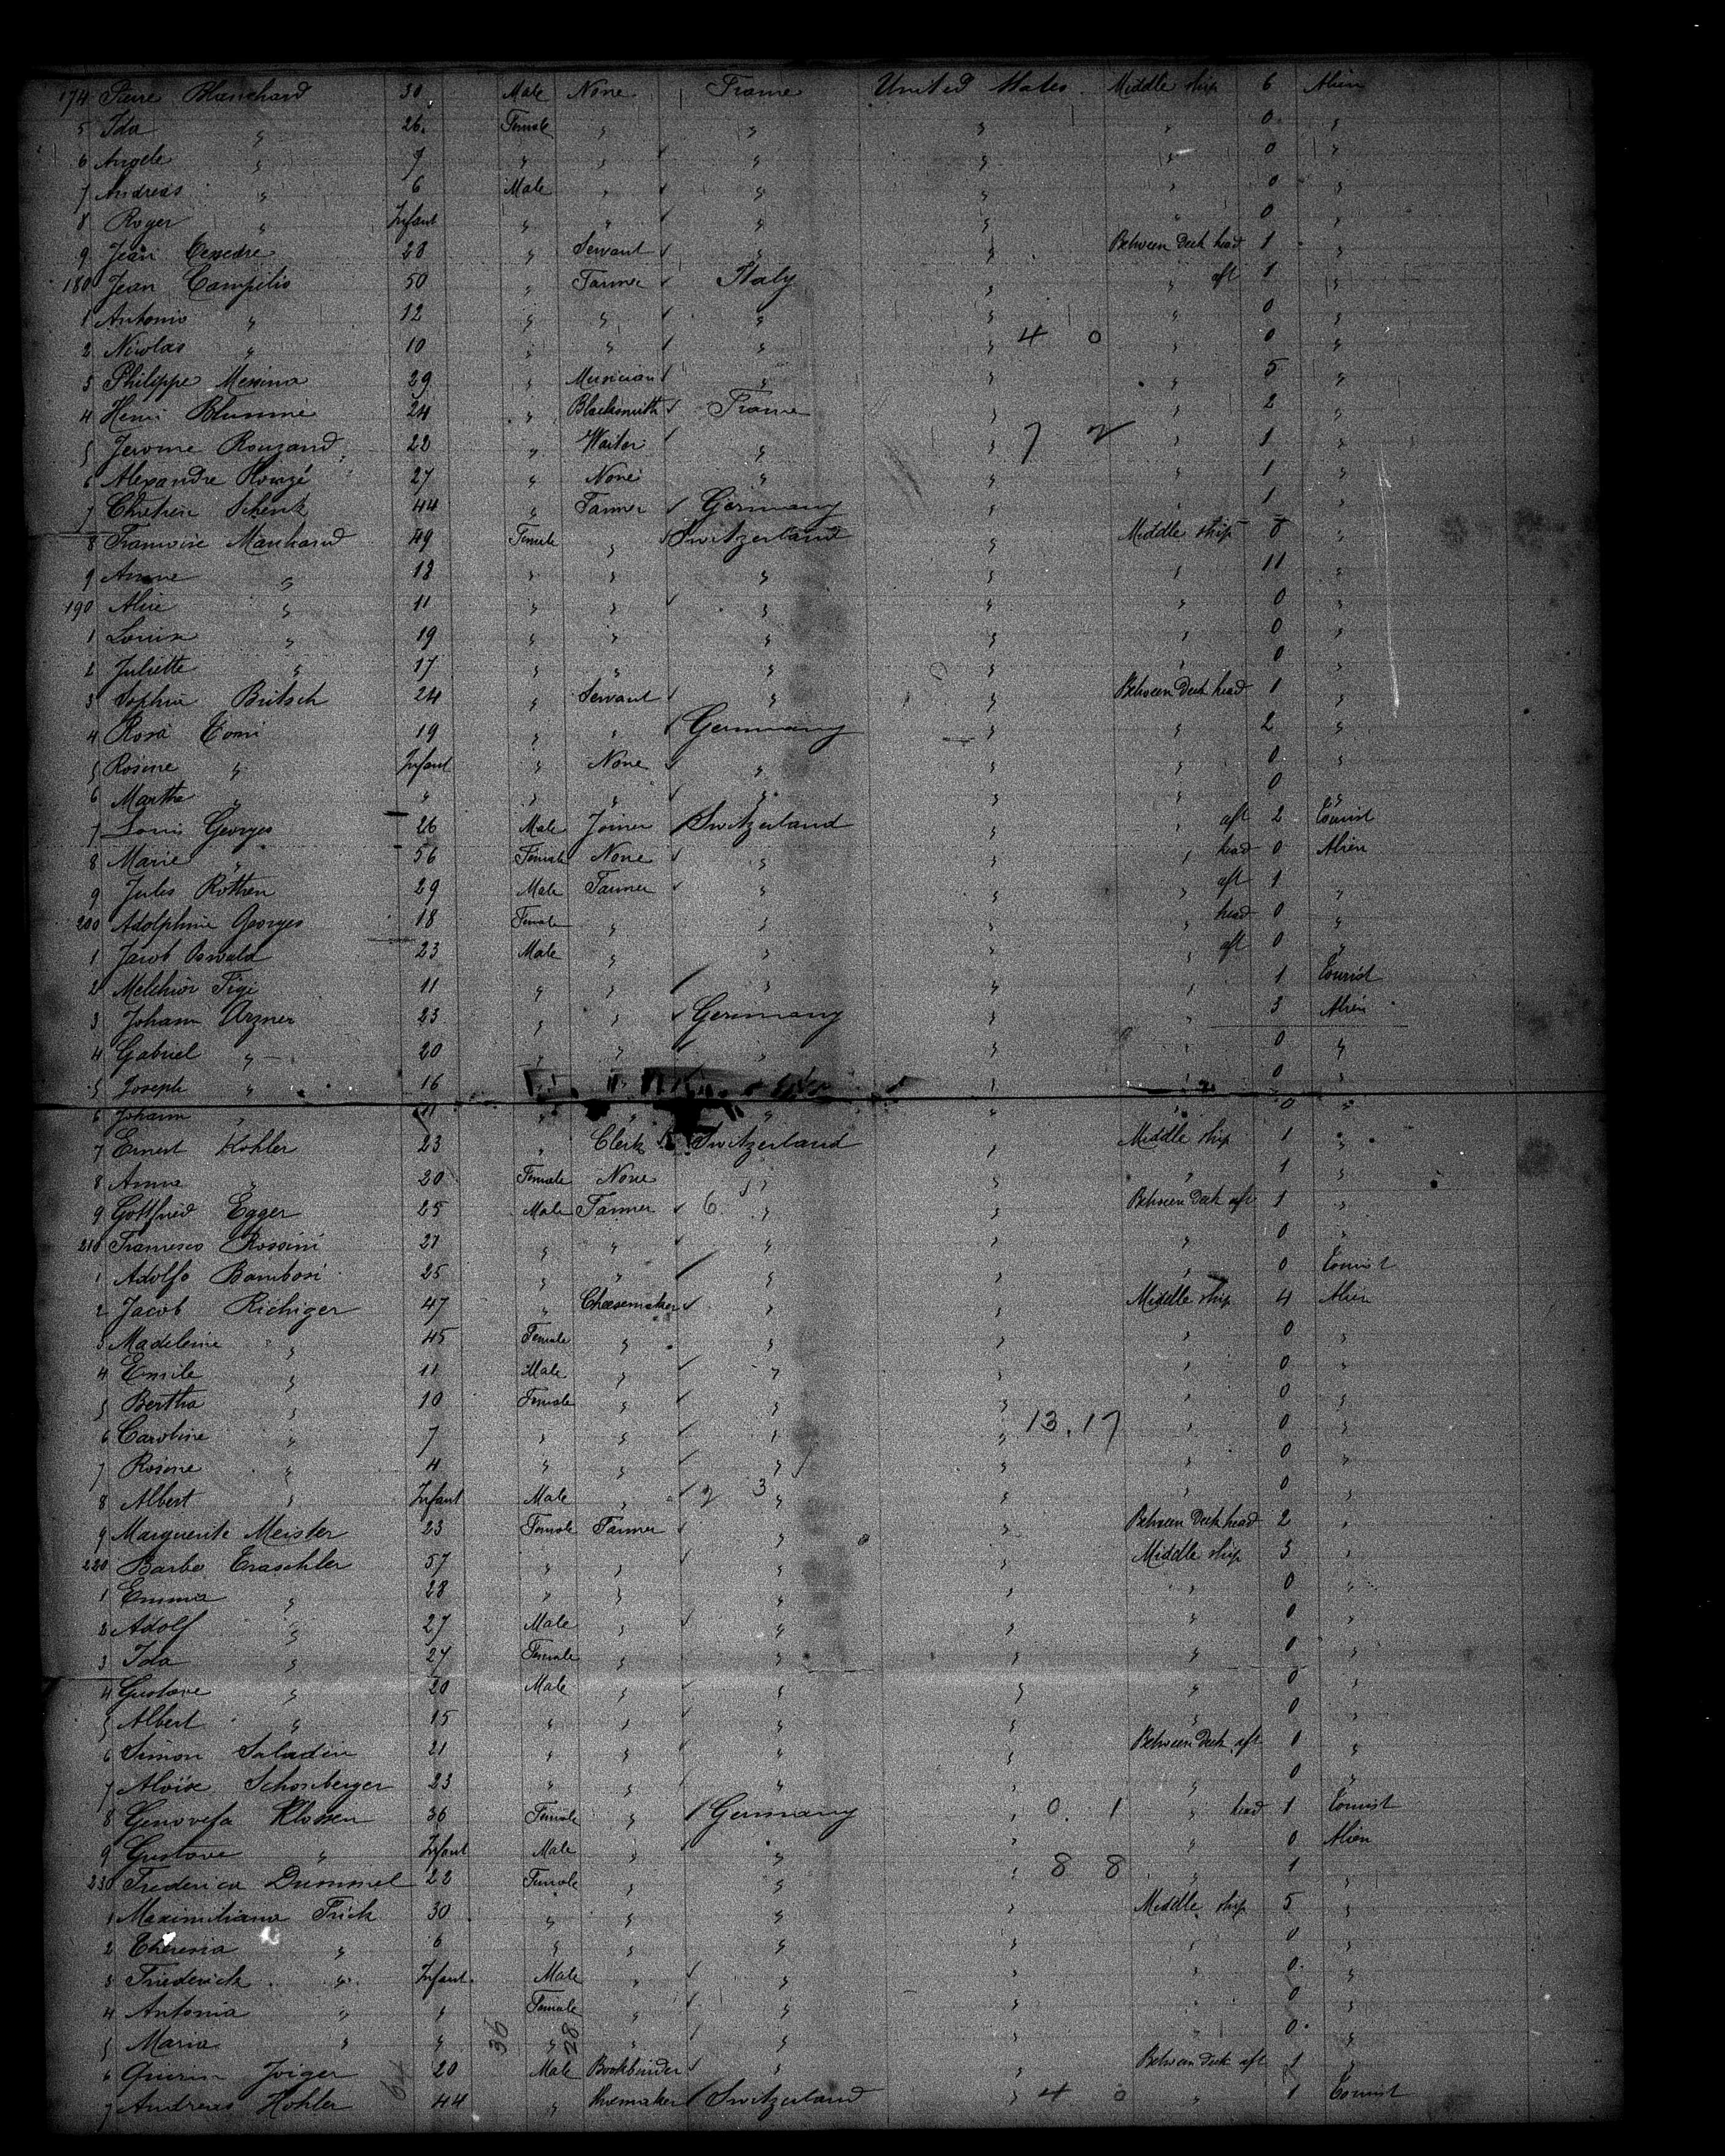 174 Pierre Blanchard 30 Male None France United States Middle ship 6 Alien
5 Ida " 26 Female " " " " 0 "
6 Angele " 7 " " " " " 0 "
7 Andreas " 6 Male " " " " 0 "
8 Roger " Infant " " " " " 0 "
9 Jean 28 " Servant " " Between Deck head 1 "
180 Jean Campilio 50 " Farmer Italy " " aft 1 "
1 Antonio " 12 " " " " " 0 "
2 Nicolas " 10 " " " " 4 0 " 0 "
3 Philippe Messina 29 " Musician " " " 5 "
4 Henri Blumme 24 " Blacksmith France " " 2 "
5 Jerome Rouzand 22 " Waiter " " 7 2 " 1 "
6 Alexandre 27 " None " " " 1 "
7 Chretien Schenk 44 " Farmer Germany " " 1 "
8 Francoise Marchand 49 Female " Switzerland " Middle ship 8 "
9 Anna " 18 " " " " " 11 "
190 Alice " 11 " " " " " 0 "
1 Louisa " 19 " " " " " 0 "
2 Juliette " 17 " " " " " 0 "
3 Sophia Britsch 24 " Servant " " Between Deck head 1 "
4 Rosa Tomi 19 " " Germany " " 2 "
5 Rosine " Infant " None " " " 0 "
6 Martha " " " " " " " 0 "
7 Louis Georges 26 Male Joiner Switzerland " " aft 2 Tourist
8 Marie " 56 Female None " " " head 0 Alien
9 Jules Rothen 29 Male Farmer " " " aft 1 "
200 Adolphine Georges 18 Female " " " " head 0 "
1 Jacob Oswald 23 Male " " " " aft 0 "
2 Melchior Figi 11 " " " " " 1 Tourist
3 Johann Arzner 23 " " Germany " " 3 Alien
4 Gabriel " 20 " " " " " 0 "
5 Joseph " 16 " " 0 "
6 Johann " 11 " " " " 0 "
7 Ernest Kohler 23 " Clerk Switzerland " Middle ship 1 "
8 Anna " 20 Female None " " " 1 "
9 Gottfried Egger 25 Male Farmer 6 " " Between Deck aft 1 "
210 Francesco Rossini 27 " " " " " 0 "
1 Adolfo Bambosi 25 " " " " " 0 Tourist
2 Jacob Richiger 47 " Cheesemaker " " Middle ship 4 Alien
3 Madeleine " 45 Female " " " " 0 "
4 Emile " 11 Male " " " " 0 "
5 Bertha " 10 Female " " " " 0 "
6 Caroline " 7 " " " " 13.17 " 0 "
7 Rosine " 4 " " " " " 0 "
8 Albert " Infant Male " 2 3 " " " 0 "
9 Marguerite Meister 23 Female Farmer " " Between Deck head 2 "
220 Barbe Traschler 57 " " " " Middle ship 3 "
1 Emma " 28 " " " " " 0 "
2 Adolf " 27 Male " " " " 0 "
3 Ida " 27 Female " " " " 0 "
4 Gustave " 20 Male " " " " 0 "
5 Albert " 15 " " " " " 0 "
6 Simon Saladin 21 " " " " Between Deck aft 1 "
7 Aloise Schonberger 23 " " " " " 0 "
8 Genovefa Klossen 36 Female " Germany " 0. 1 " head 1 Tourist
9 Gustave " Infant Male " " " " 0 Alien
230 Frederica Dummel 22 Female " " " 8 8 " 1 "
1 Maximiliana Frick 30 " " " " Middle ship 5 "
2 Theresia " 6 " " " " " 0 "
3 Friederick " Infant Male " " " " 0 "
4 Antonia " " Female " " " " 0 "
5 Maria " " 36 " 28 " " " " 0 "
6 Quirin Joiger 64 20 Male Bookbinder " " Between deck aft 1 "
7 Andreas Kohler 44 " Shoemaker Switzerland " 4 0 " 1 Tourist